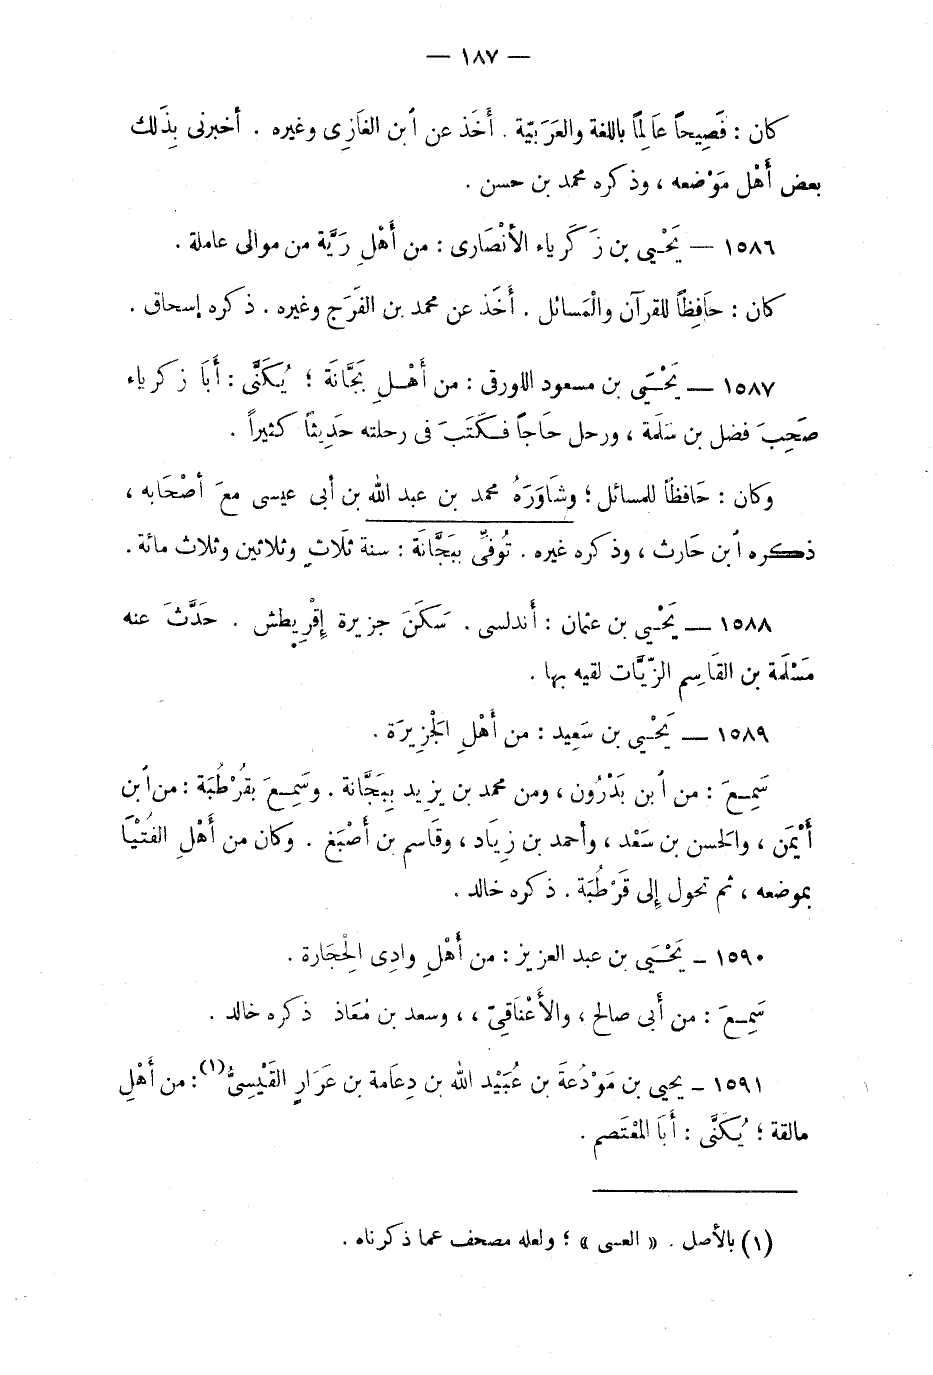 — ١٨٧ —
كان : فَصِيحاً عَالِماً باللغة والعَرَبيّة . أَخَذ عن ٱبن الغَازِى وغيره . أخبرنى بِذَلك
بعض أَهْل مَوْضعه ، وذكره محمد بن حسن .
١٥٨٦ — يَحْيي بن زَكَرياء الأنْصَارى : من أَهْلِ رَيَّة من موالى عاملة .
كان : حَافِظاً للقرآن والْمَسائل . أَخَذ عن محمد بن الفَرَج وغيره . ذكره إسحاق .
١٥٨٧ — يَحْيَي بن مسعود اللورقى : من أَهْلِ بَجَّانَة ؛ يُكَنَّى : أَبَا زكرياء
صَحِبَ فضل بن سَلَمة ، ورحل حَاجاً فكَتَبَ فى رحلته حَدِيثاً كثيراً .
وكان : حَافظاً للمسائل ؛ وشَاوَرَهُ محمد بن عبد الله بن أبى عيسى معَ أصْحَابه ،
ذكره ٱبن حَارث ، وذكره غيره . تُوفىِّ ببَجَّانَة : سنة ثلَاثٍ وثلاثين وثلاث مائة .
١٥٨٨ — يَحْيي بن عثمان : أَندلسى . سَكَنَ جزيرة إقْرِيطش . حَدَّثَ عنه
مَسْلَمة بن القَاسِم الزّيَّات لقيه بها .
١٥٨٩ — يَحْيي بن سَعِيد : من أَهْلِ الجْزِيرَة .
سَمِعَ : من ٱبن بَدْرُون ، ومن محمد بن يزيد بِبَجَّانة . وسَمِعَ بقُرْطُبَة : من ٱبن
أَيْمَن ، والحسن بن سَعْد ، وأحمد بن زِيَاد ، وقَاسِم بن أَصْبَغ . وكان من أَهْلِ الفُتْيَا
بموضعه ، ثم تحول إِلى قُرْطُبَة . ذكره خالد .
١٥٩٠ — يَحْيَي بن عبد العزيز : من أَهْلِ وادِى الْحِجَارة .
سَمِعَ : من أَبى صالح ، والأَعْنَاقِىّ ، ، وسعد بن مُعَاذ ذكره خالد .
١٥٩١ — يحيى بن مَوْدُعةَ بن عُبَيْد الله بن دِعَامة بن عَرَارٍ القَيْسِىُّ (١) : من أَهْلِ
مالقة ؛ يُكَنَّى : أَبَا المْعْتَصم .
(١) بالأصل . « العسى » ؛ ولعله مصحف عما ذكرناه .